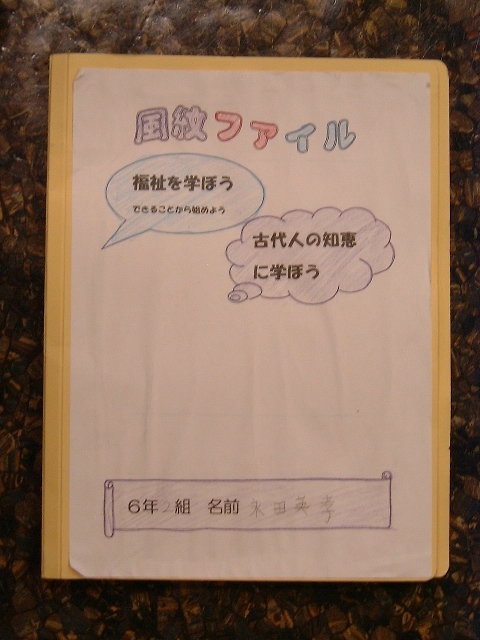 風紋ファイル
福祉を学ぼう
できることから始めよう
古代人の知恵
に学ぼう
6年2組 名前 永田英孝